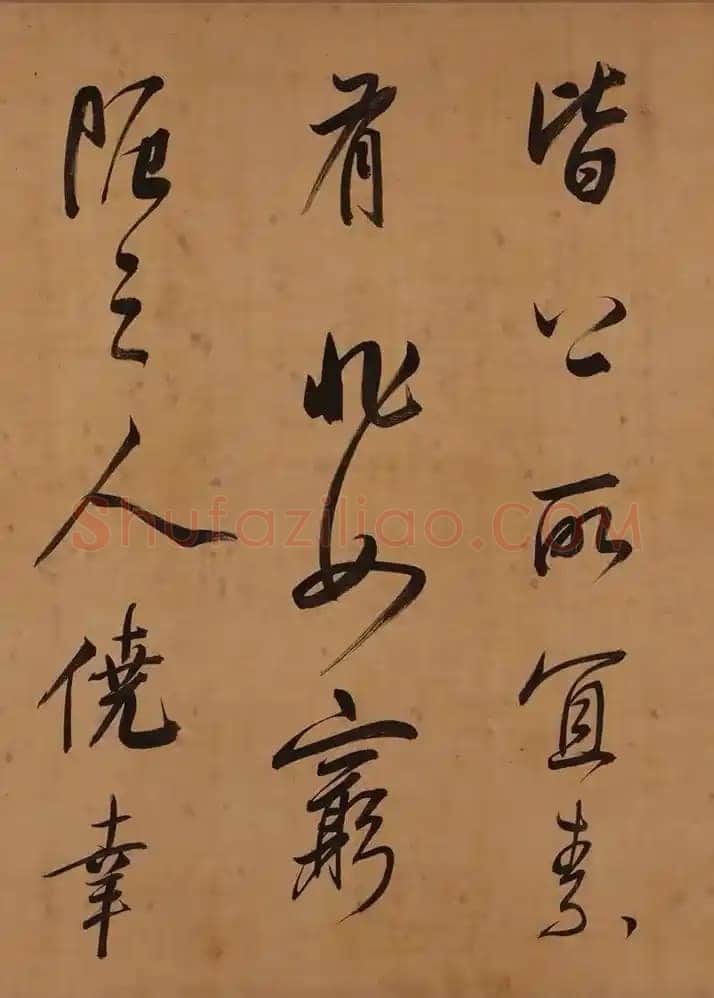 皆公所宜素
有非如窮
阨之人僥幸
Shufaziliao.COM